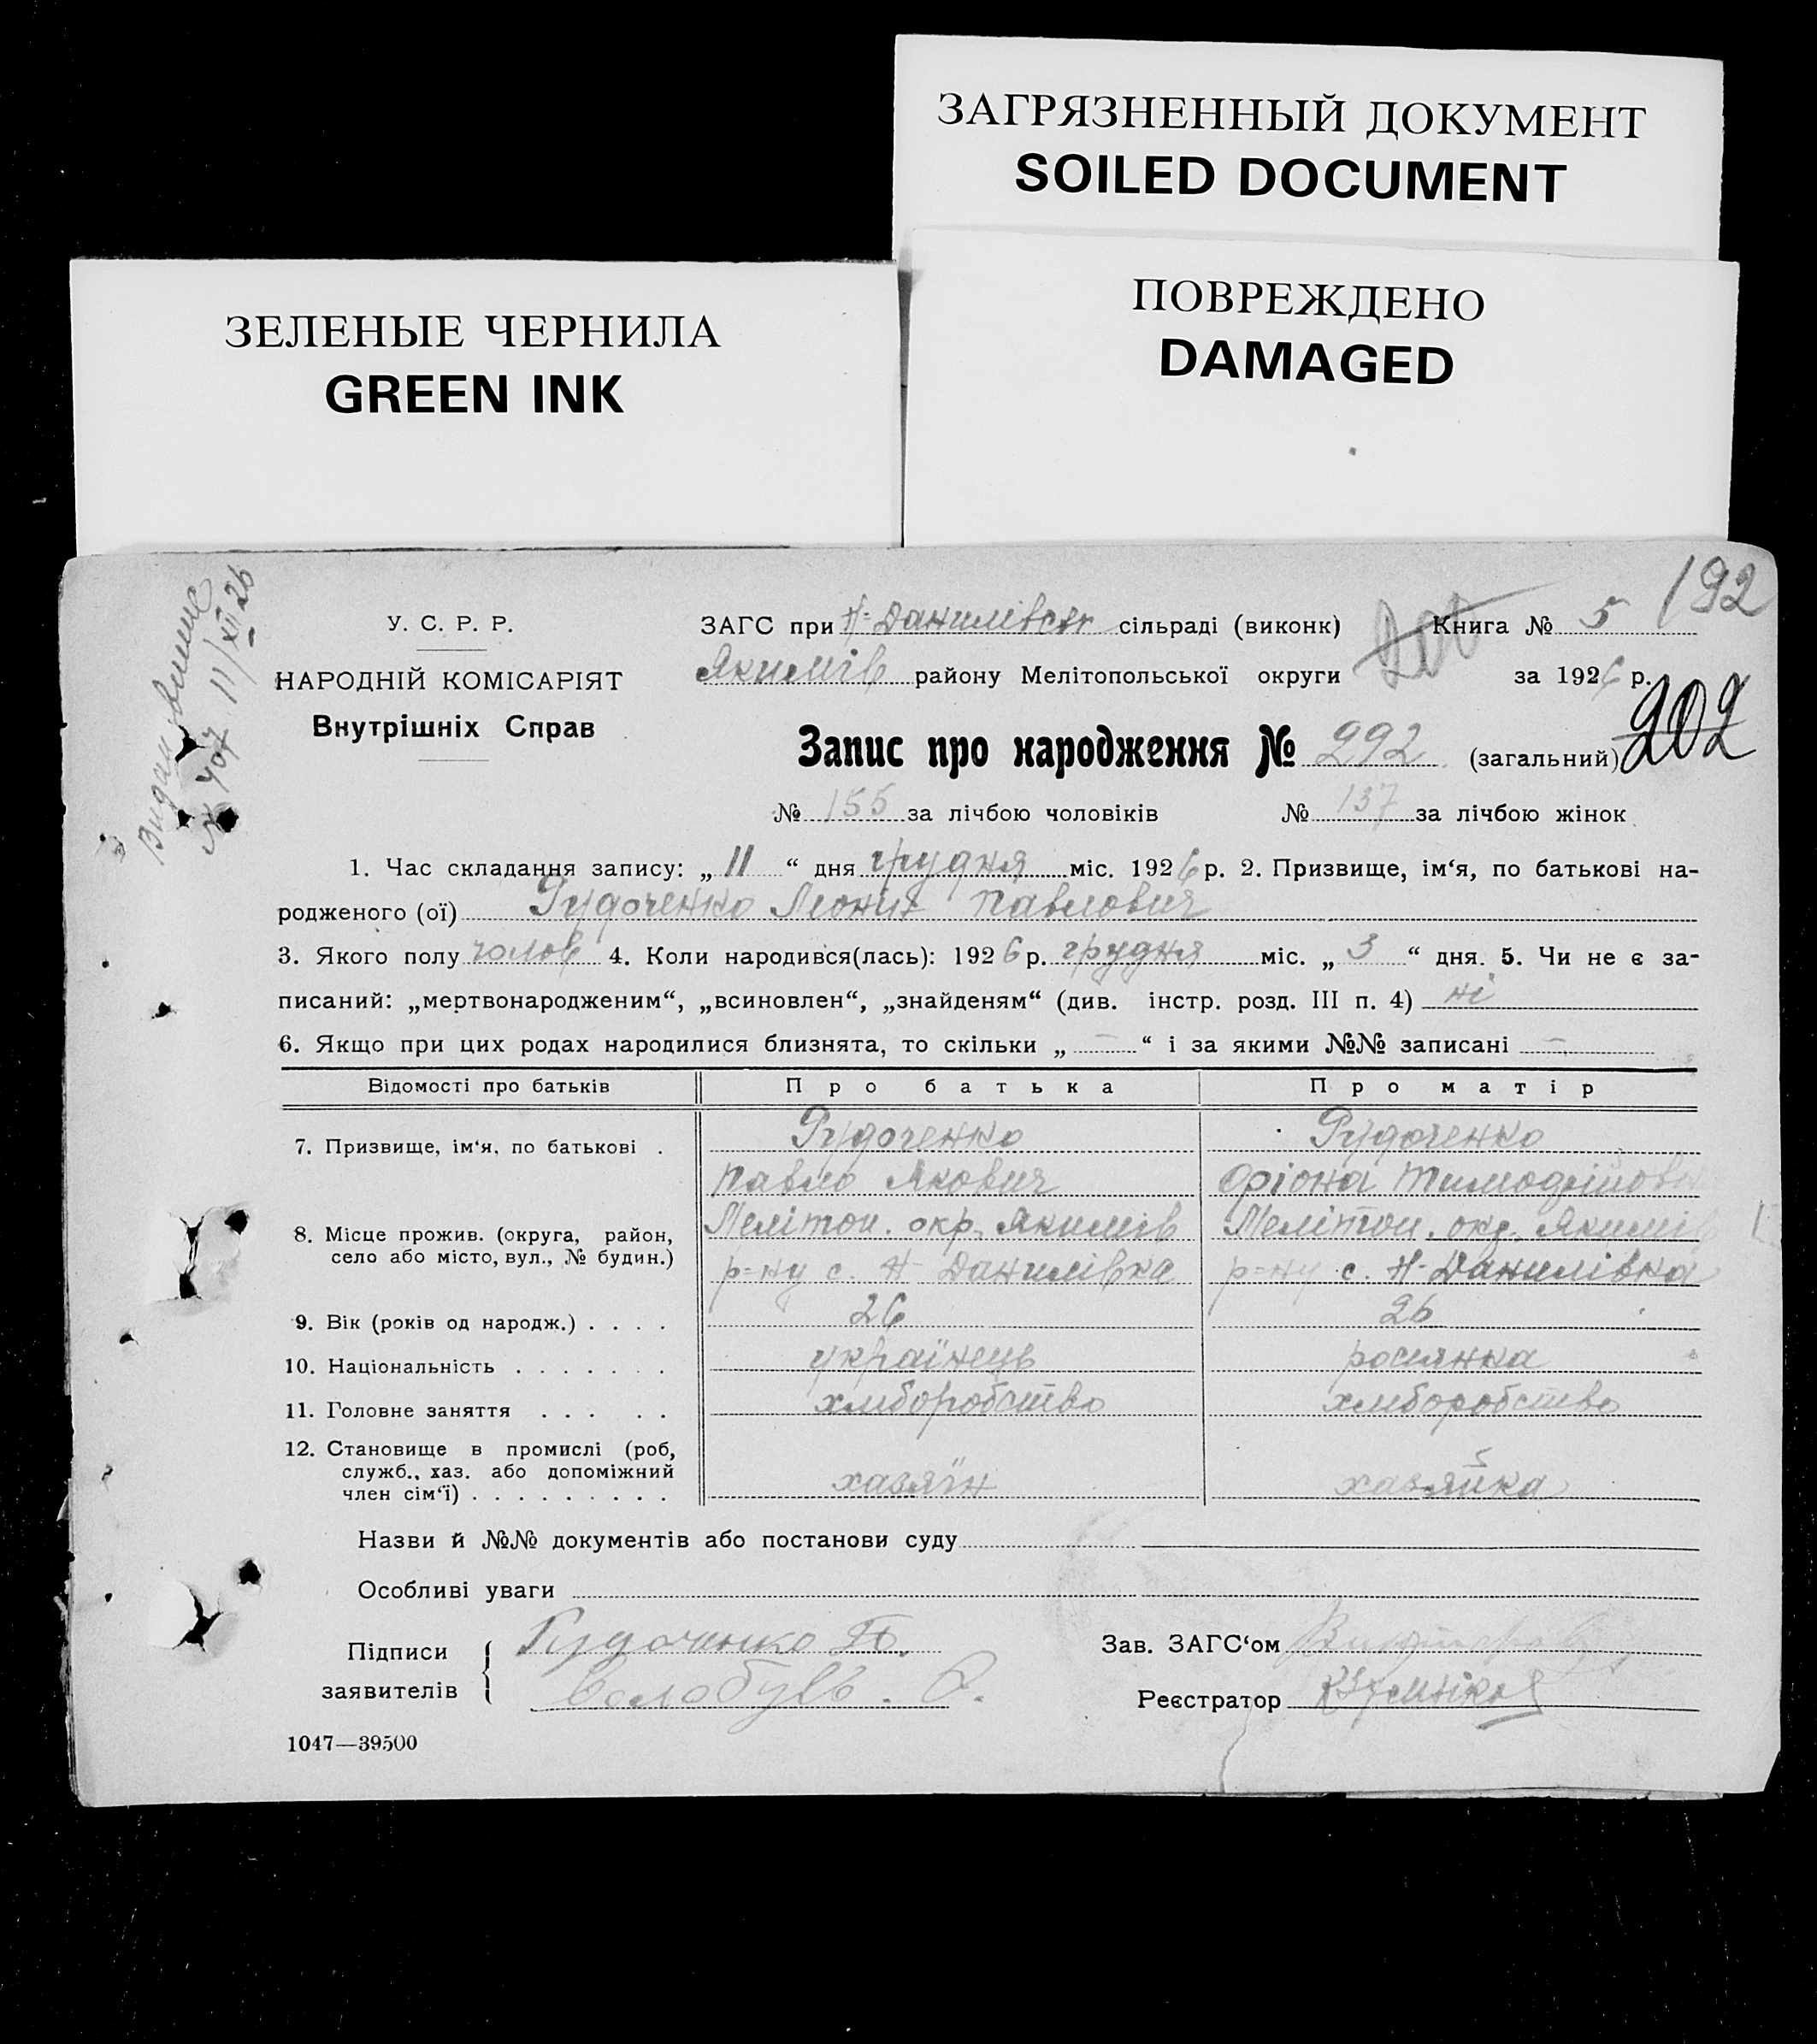 ЗАГРЯЗНЕННЫЙ ДОКУМЕНТ
SOILED DOCUMENT
ЗЕЛЕНЫЕ ЧЕРНИЛА
GREEN INK
ПОВРЕЖДЕНО
DAMAGED
192
№ 407 11/XII 26
У. С. Р. Р.
НАРОДНІЙ КОМІСАРІЯТ
Внутрішніх Справ
ЗАГС при Н-Данилівськ сільраді (виконк) Книга № 5
Якимів району Мелітопольської округи за 1926 р.
202
Запис про народження № 292 (загальний)
№ 155 за лічбою чоловіків № 137 за лічбою жінок
1. Час складання запису: „ 11 “ дня грудня міс. 1926 р. 2. Призвище, ім‘я, по батькові на-
родженого (ої) Рудоченко Леонид Павлович
3. Якого полу чолов 4. Коли народився(лась): 1926 р. грудня міс. „ 3 “ дня. 5. Чи не є за-
писаний: „мертвонародженим“, „всиновлен“, „знайденям“ (див. інстр. розд. III п. 4) ні
6. Якщо при цих родах народилися близнята, то скільки „ — “ і за якими №№ записані —
Відомості про батьків Про батька Про матір
7. Призвище, ім‘я, по батькові . Рудоченко Рудоченко
Павло Якович Оріона Тимофіїовна
8. Місце прожив. (округа, район, Мелітоп. окр. Якимів Мелітоп. окр. Якимів
село або місто, вул., № будин.) р=ну с. Н-Данилівка р=ну с. Н-Данилівка
9. Вік (років од народж.) . . . . 26 26
10. Національність . . . . . . . українець росиянка
11. Головне заняття . . . . . хлиборобство хлиборобство
12. Становище в промислі (роб,
служб., хаз. або допоміжний
член сім‘ї) . . . . . . . . . хазяїн хазяйка
Назви й №№ документів або постанови суду
Особливі уваги
Підписи Рудоченко П.
заявителів
Зав. ЗАГС‘ом
Реєстратор
1047—39500